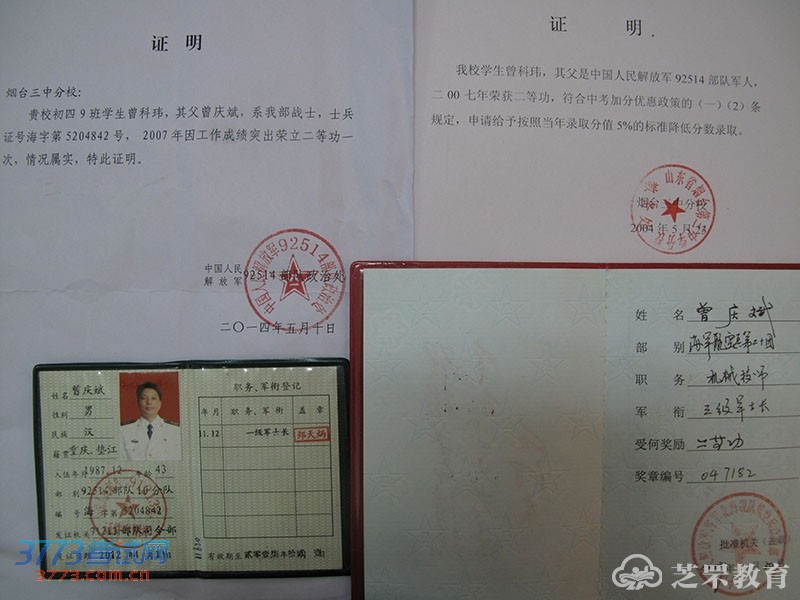 证 明
烟台三中分校:
贵校初四 9 班学生曾科玮,其父曾庆斌,系我部战士,士兵
证号海字第 5204842 号, 2007 年因工作成绩突出荣立二等功一
次,情况属实,特此证明。
中国人民
解放军
92514 部队政治处
二〇一四年五月十日
中国人民解放军92514部队政治处
证 明
我校学生曾科玮,其父是中国人民解放军 92514 部队军人,
二 00 七年荣获二等功,符合中考加分优惠政策的(一)(2)条
规定,申请给予按照当年录取分值 5%的标准降低分数录取。
烟台三中分校
姓名 曾庆斌
性别 男
民族 汉
籍贯 重庆、垫江
入伍年月 1987.12 年龄 43
部别 92514部队10分队
编号 海字第5204842
发证机关
职务、军衔登记
年月 职务、军衔 盖章
11.12 一级军士长 郑天炳
有效期至
姓 名 曾庆斌
部 别
职 务 机械技师
军 衔 三级军士长
受何奖励 二等功
奖章编号 047152
批准机关(盖
3773考试网
3773.com.cn
芝罘教育